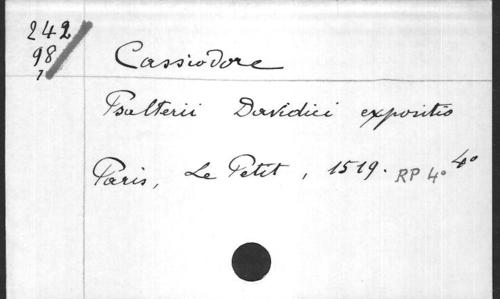 242
98
1
Cassiodore
Psalterii Davidici expositio
Paris, Le Petit, 1519. RP 4° 4°